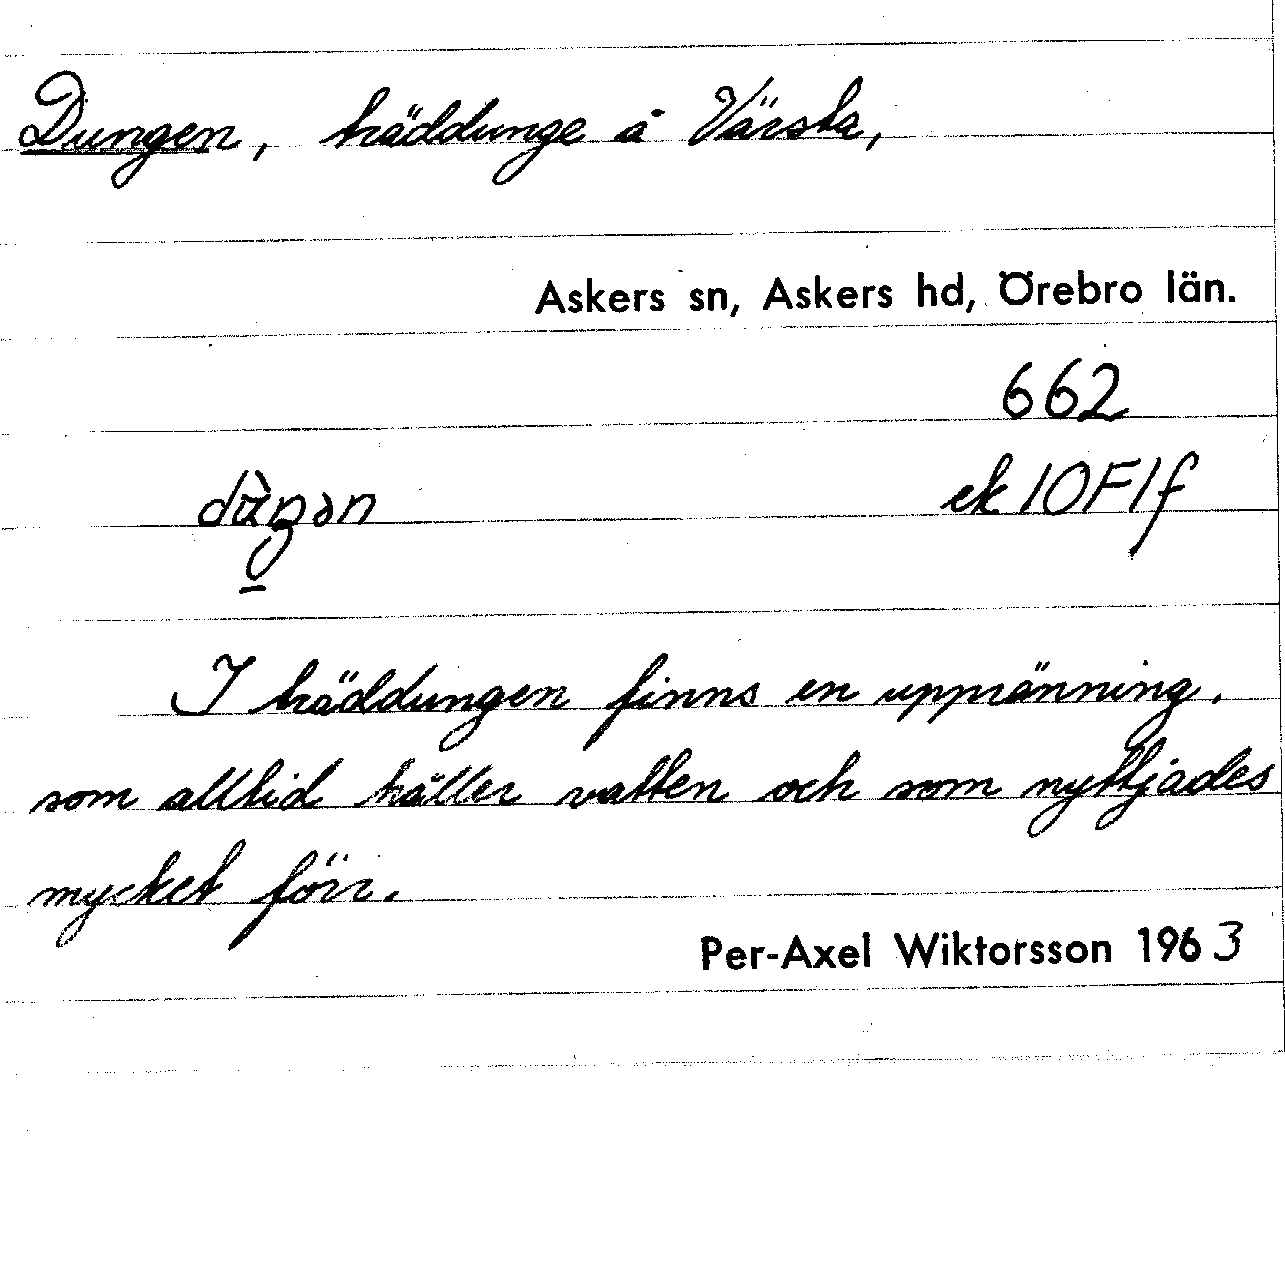 Dungen, träddunge å Värsta,
Askers sn, Askers hd, Örebro län.
662
ek 10F1f
I träddungen finns en uppränning,
som alltid håller vatten och som nyttjades
mycket förr.
Per-Axel Wiktorsson 1963